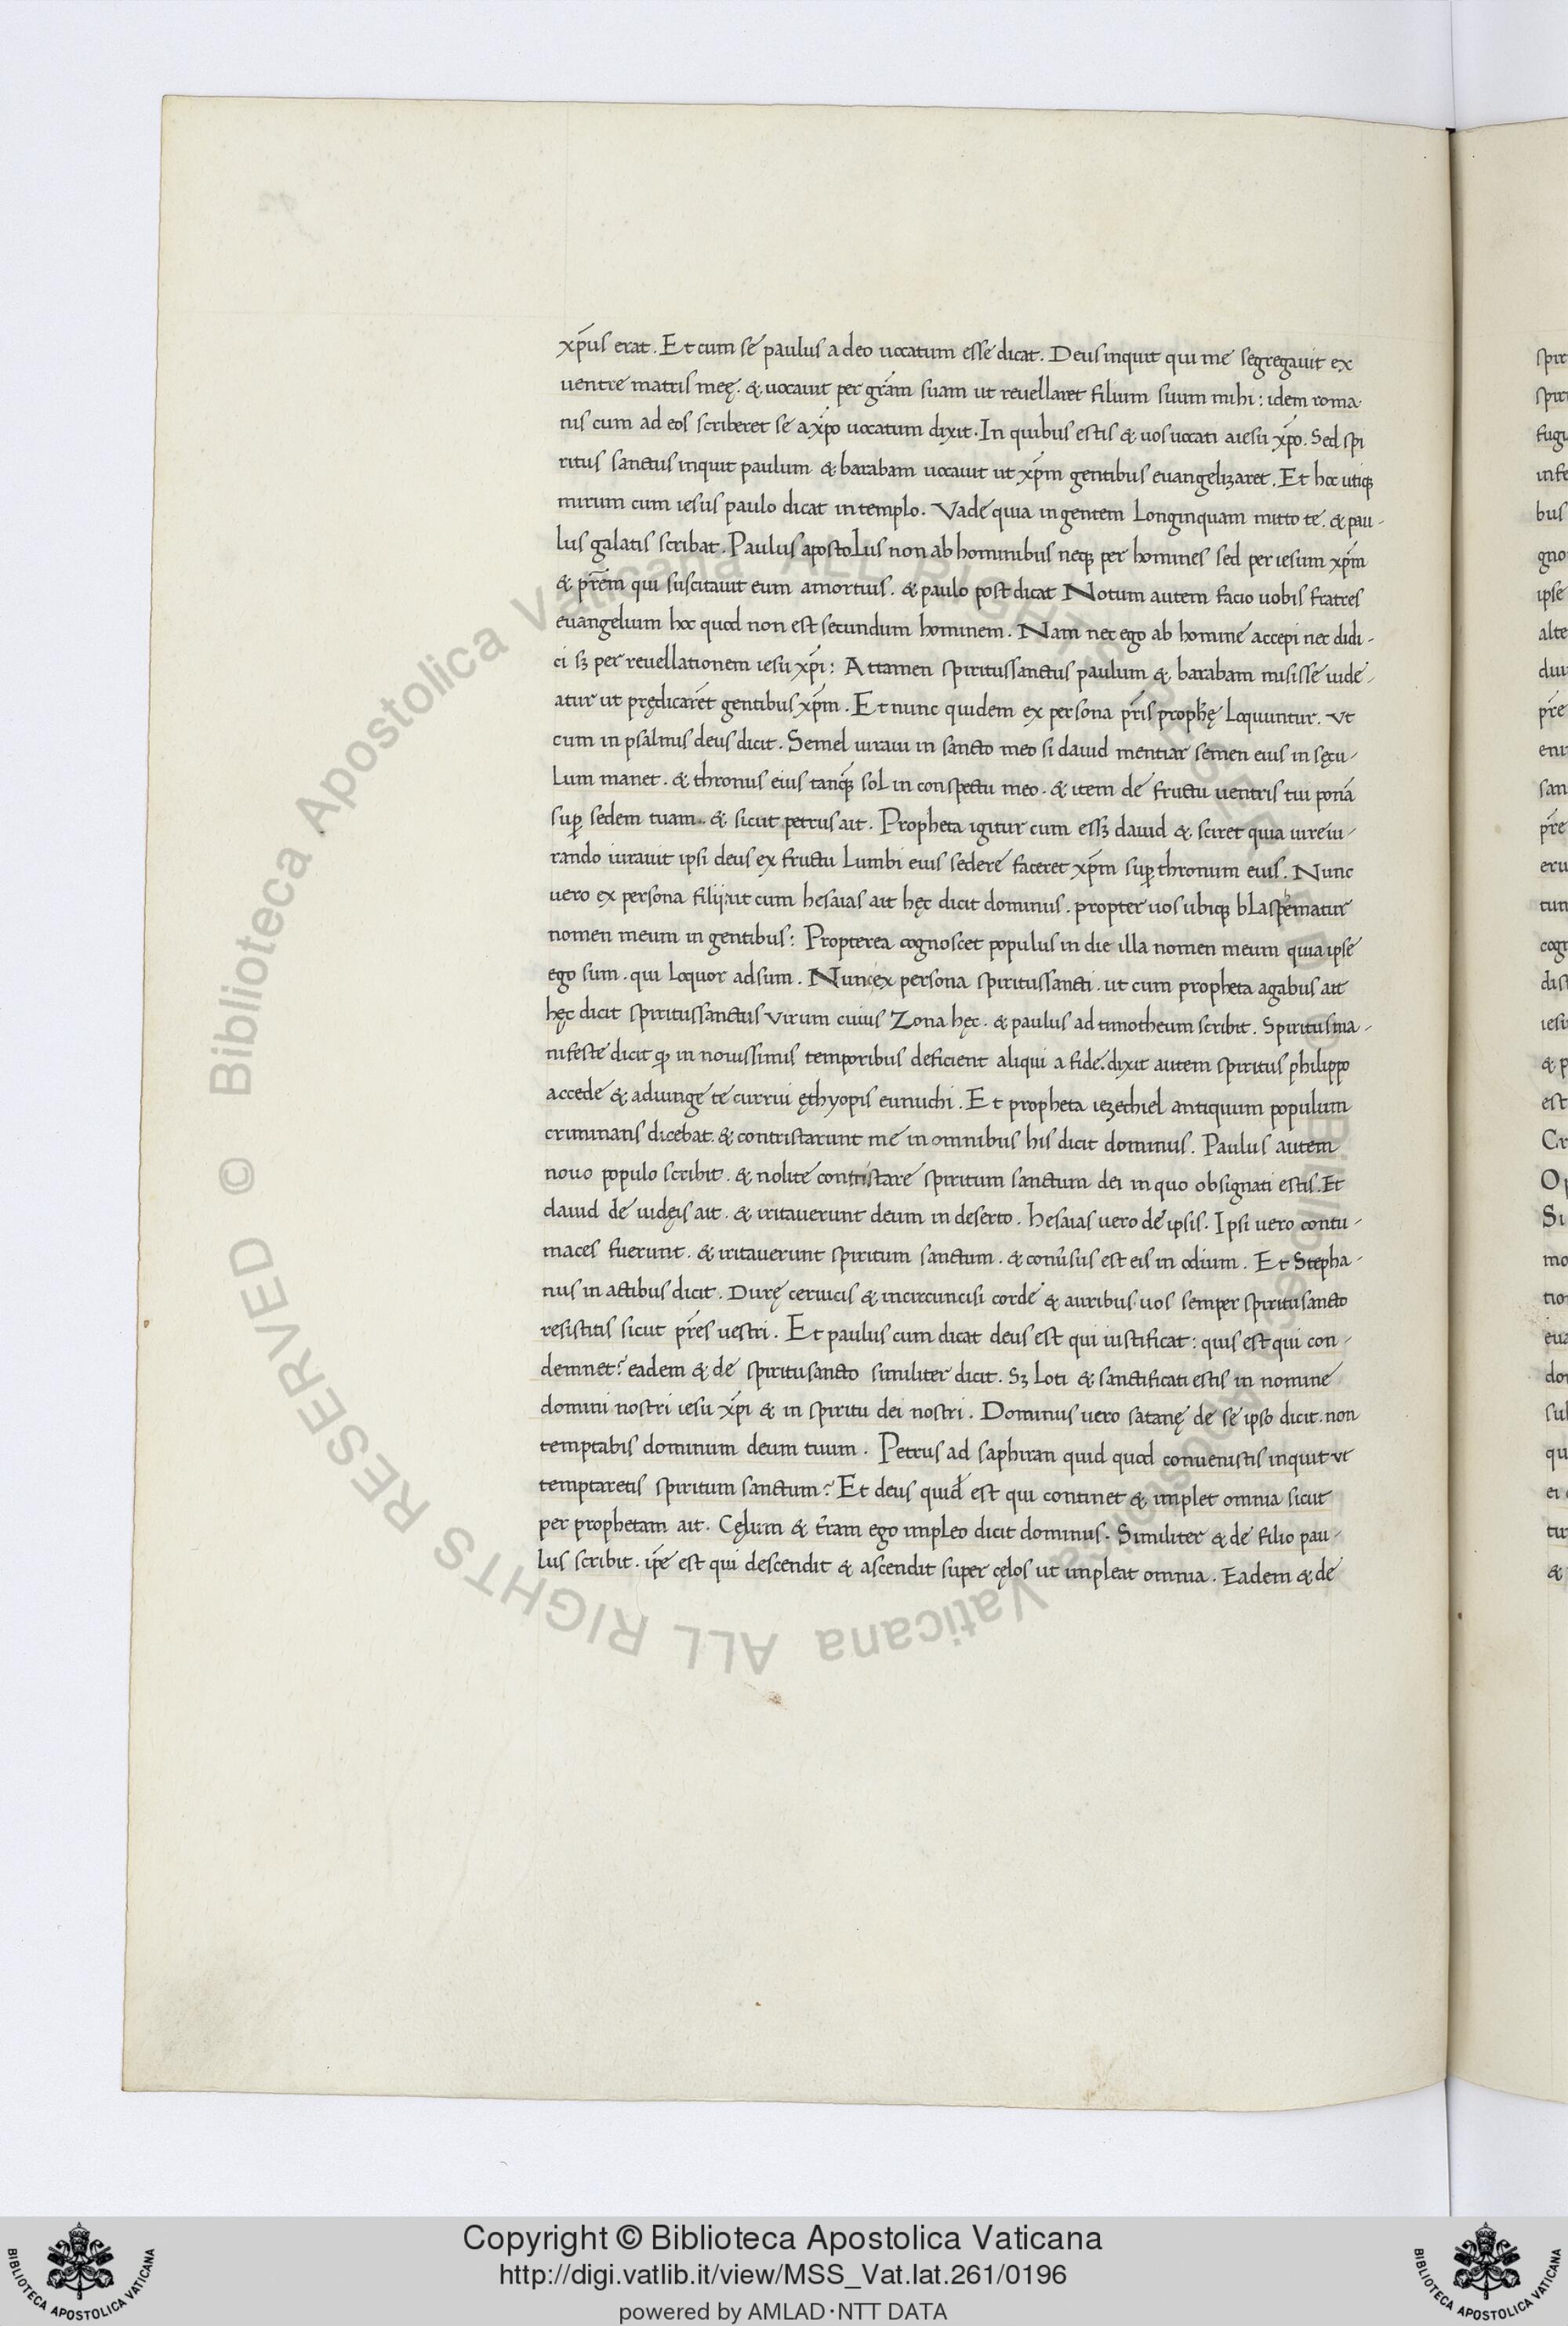 xp̅us erat. Et cum se paulus a deo uocatum esse dicat. Deus inquit qui me segregauit ex
uentre matris meę. & uocauit per gr̅am suam ut reuellaret filium suum mihi: idem roma
nis cum ad eos scriberet se a xp̅o uocatum dixit. In quibus estis & uos uocati a iesu xp̅o. Sed spi
ritus sanctus inquit paulum & barabam uocauit ut xp̅m gentibus euangelizaret. Et hoc utiqꝫ
mirum cum iesus paulo dicat in templo. Vade quia in gentem Longinquam mitto te. & pau-
lus galatis scribat. Paulus apostoLus non ab hominibus neqꝫ per homines sed per iesum xp̅m
& pr̅em qui suscitauit eum a mortuis. & paulo post dicat Notum autem facio uobis fratres
euangelium hoc quod non est secundum hominem. Nam nec ego ab homine accepi nec didi-
ci sꝫ per reuellationem iesu xp̅i: Attamen spiritussanctus paulum & barabam misisse uide-
atur ut prędicaret gentibus xp̅m. Et nunc quidem ex persona pr̅is prophę Loquuntur. Vt
cum in psalmis deus dicit. Semel iuraui in sancto meo si dauid mentiar semen eius in sęcu-
Lum manet. & thronus eius tanqꝫ sol in conspectu meo. & item de fructu uentris tui ponā
sup̱ sedem tuam. & sicut petrus ait. Propheta igitur cum essꝫ dauid & sciret quia iureiu-
rando iurauit ipsi deus ex fructu Lumbi eius sedere faceret xp̅m sup̱ thronum eius. Nunc
uero ex persona filij: ut cum hesaias ait hęc dicit dominus. propter uos ubiqꝫ bLaspematur
nomen meum in gentibus: Propterea cognoscet populus in die illa nomen meum quia ipse
ego sum. qui Loquor adsum. Nunc ex persona spiritussancti. ut cum propheta agabus ait
hęc dicit spiritussanctus Virum cuius Zona hęc. & paulus ad timotheum scribit. Spiritus ma-
nifeste dicit ꝙ in nouissimis temporibus deficient aliqui a fide. dixit autem spiritus philippo
accede & adiunge te currui ęthyopis eunuchi. Et propheta iezechiel antiquum populum
criminans dicebat. & contristarunt me in omnibus his dicit dominus. Paulus autem
nouo populo scribit. & nolite contristare spiritum sanctum dei in quo obsignati estis. Et
dauid de iudęis ait. & iritauerunt deum in deserto. hesaias uero de ipsis. Ipsi uero contu-
maces fuerunt. & iritauerunt spiritum sanctum. & conu̅sus est eis in odium. Et Stepha-
nus in actibus dicit. Durę ceruicis & incircuncisi corde & auribus uos semper spiritusancto
resistitis sicut pr̅es uestri. Et paulus cum dicat deus est qui iustificat: quis est qui con-
demnet? eadem & de spiritusancto similiter dicit. Sꝫ Loti & sanctificati estis in nomine
domini nostri iesu xp̅i & in spiritu dei nostri. Dominus uero satanę de se ipso dicit. non
temptabis dominum deum tuum. Petrus ad saphiran quid quod conuenistis inquit ut
temptaretis spiritum sanctum? Et deus quid̅ est qui continet & implet omnia sicut
per prophetam ait. Cęlum & tr̅am ego impleo dicit dominus. Similiter & de filio pau-
lus scribit. ip̅e est qui descendit & ascendit super cęlos ut impleat omnia. Eadem & de
© Biblioteca Apostolica Vaticana ALL RIGHTS RESERVED © Biblioteca Apostolica Vaticana ALL RIGHTS RESERVED
Copyright © Biblioteca Apostolica Vaticana
http://digi.vatlib.it/view/MSS_Vat.lat.261/0196
powered by AMLAD·NTT DATA
BIBLIOTECA APOSTOLICA VATICANA
BIBLIOTECA APOSTOLICA VATICANA